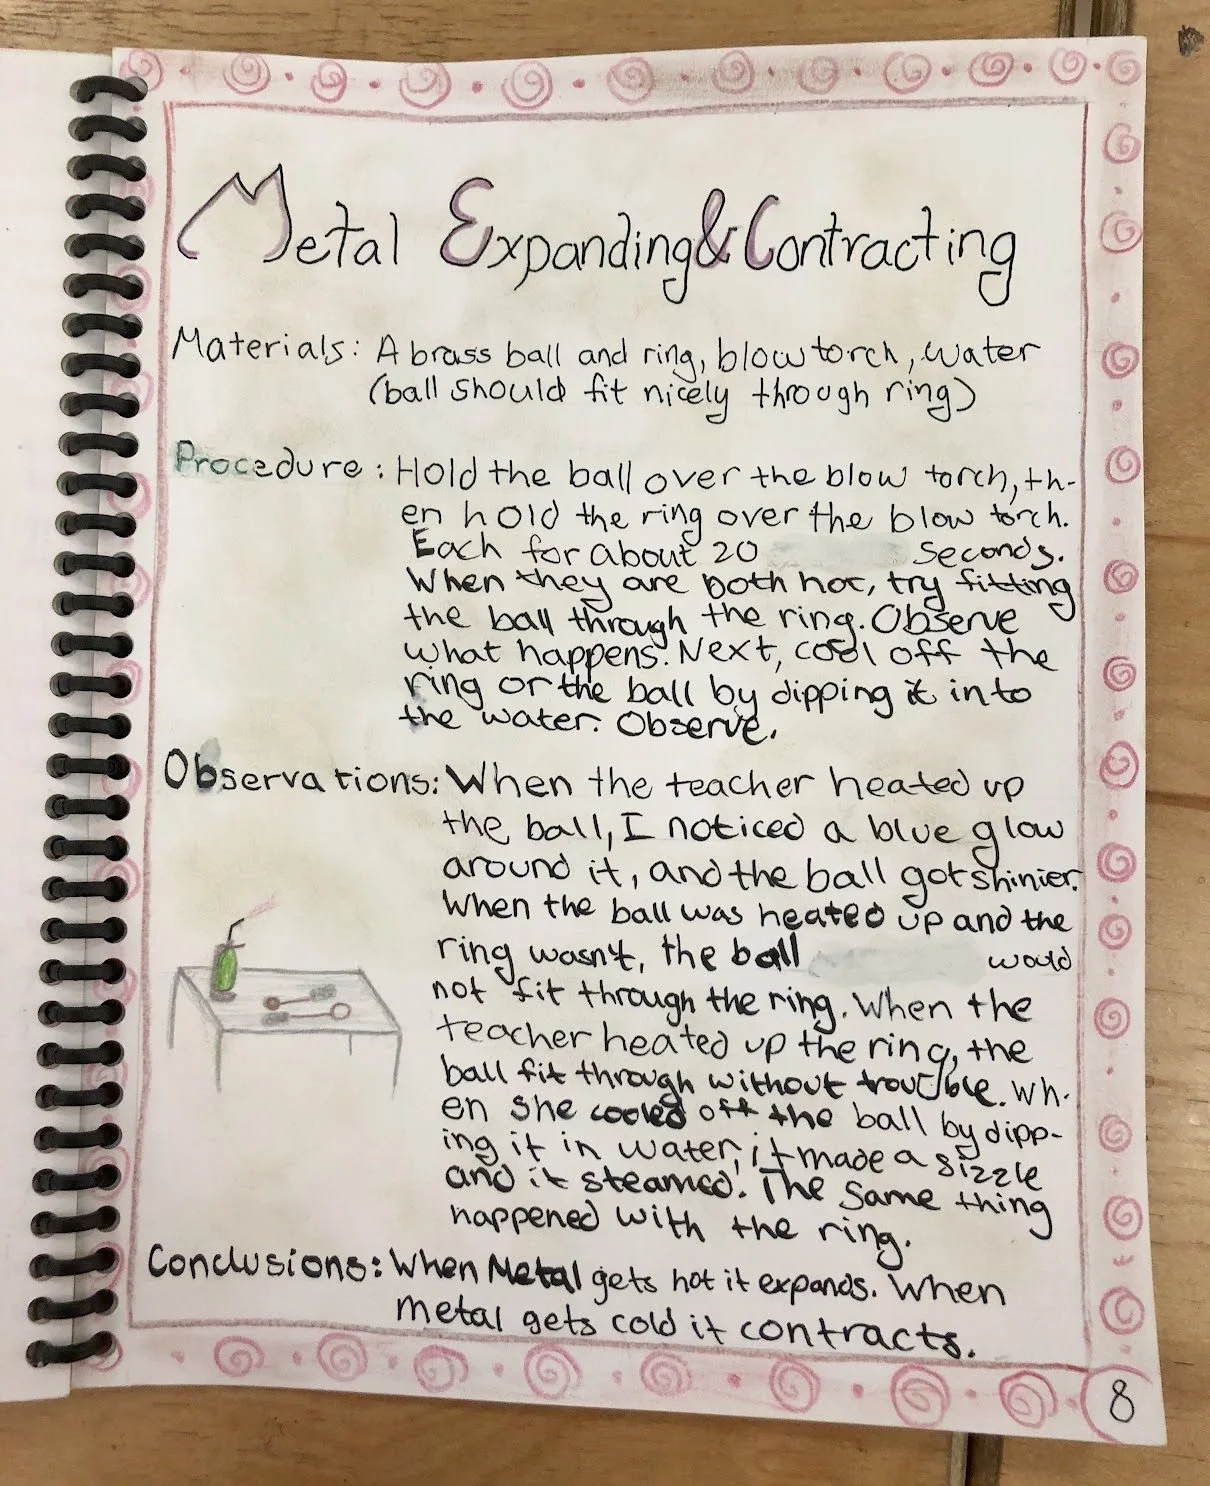 Metal Expanding & Contracting
Materials: A brass ball and ring, blow torch, water
(ball should fit nicely through ring)
Procedure: Hold the ball over the blow torch, th-
en hold the ring over the blow torch.
Each for about 20 seconds.
When they are both hot, try fitting
the ball through the ring. Observe
what happens. Next, cool off the
ring or the ball by dipping it into
the water. Observe.
Observations: When the teacher heated up
the ball, I noticed a blue glow
around it, and the ball got shinier.
When the ball was heated up and the
ring wasn't, the ball would
not fit through the ring. When the
teacher heated up the ring, the
ball fit through without trouble. Wh-
en she cooled off the ball by dipp-
ing it in water, it made a sizzle
and it steamed. The same thing
happened with the ring.
Conclusions: When Metal gets hot it expands. When
metal gets cold it contracts.
8